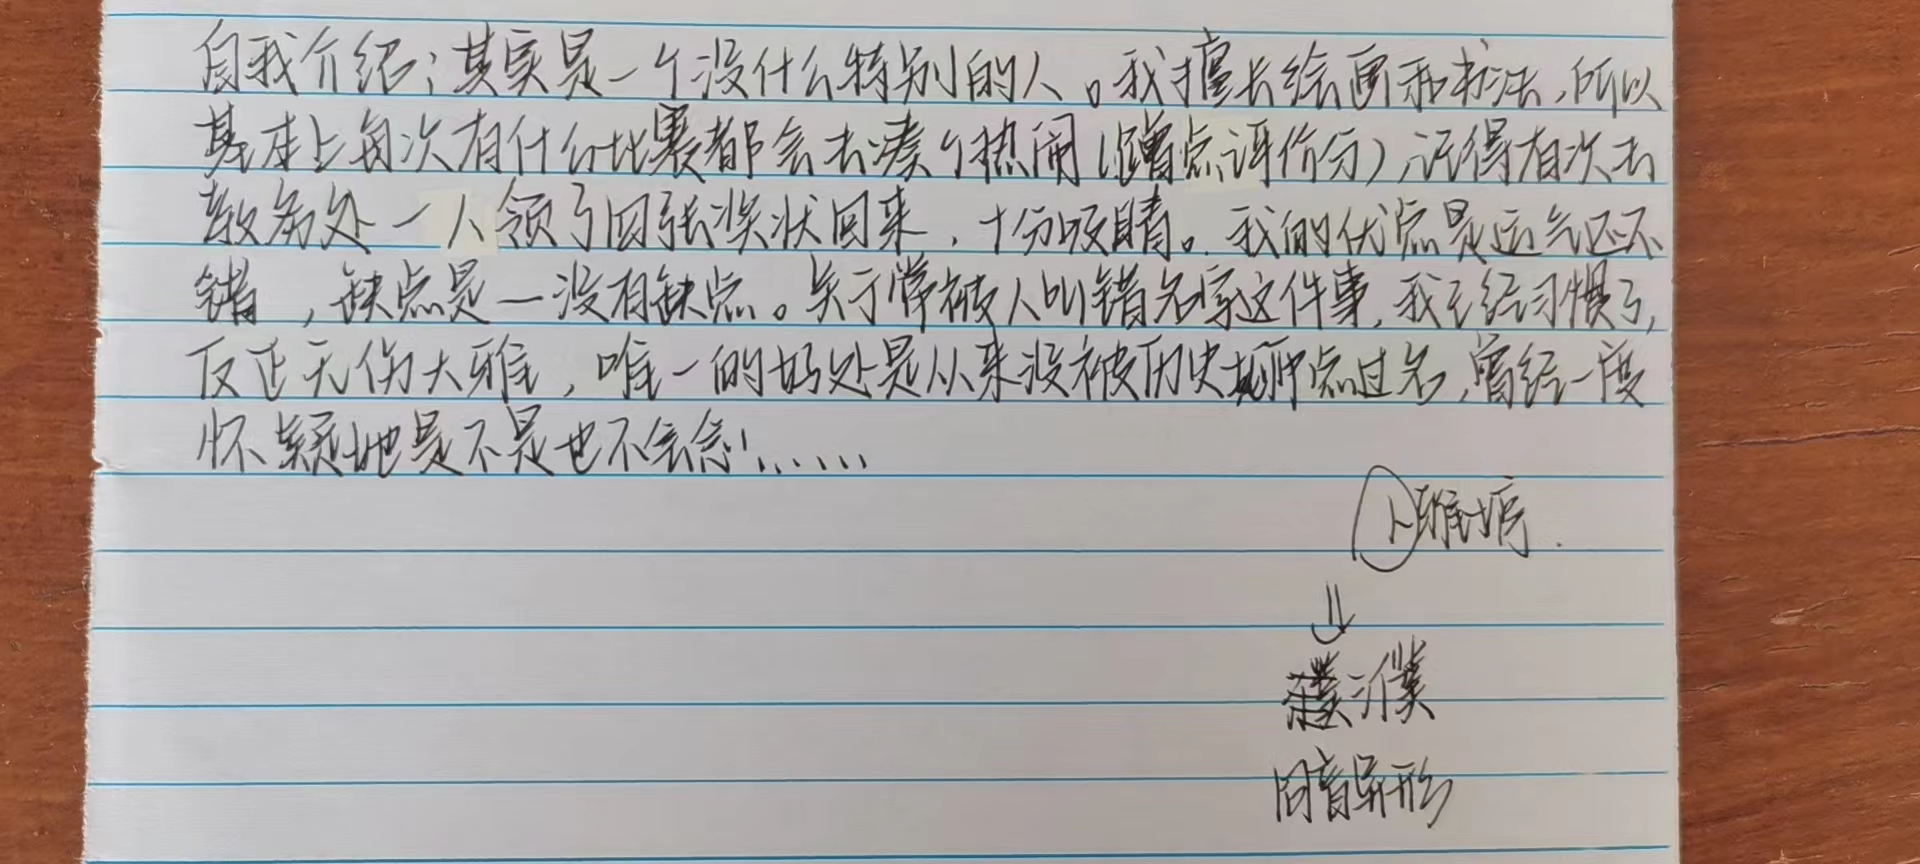 自我介绍:其实是一个没什么特别的人。我擅长绘画和书法,所以
基本上每次有什么比赛都会去凑个热闹(蹭点评价分),记得有次去
教务处一人领了四张奖状回来,十分吸睛。我的优点是运气还不
错,缺点是一没有缺点。关于常被人叫错名字这件事,我已经习惯了,
反正无伤大雅,唯一的好处是从来没被历史老师点过名,曾经一度
怀疑她是不是也不会念!......
卜雅
⇓
濮
同音异形